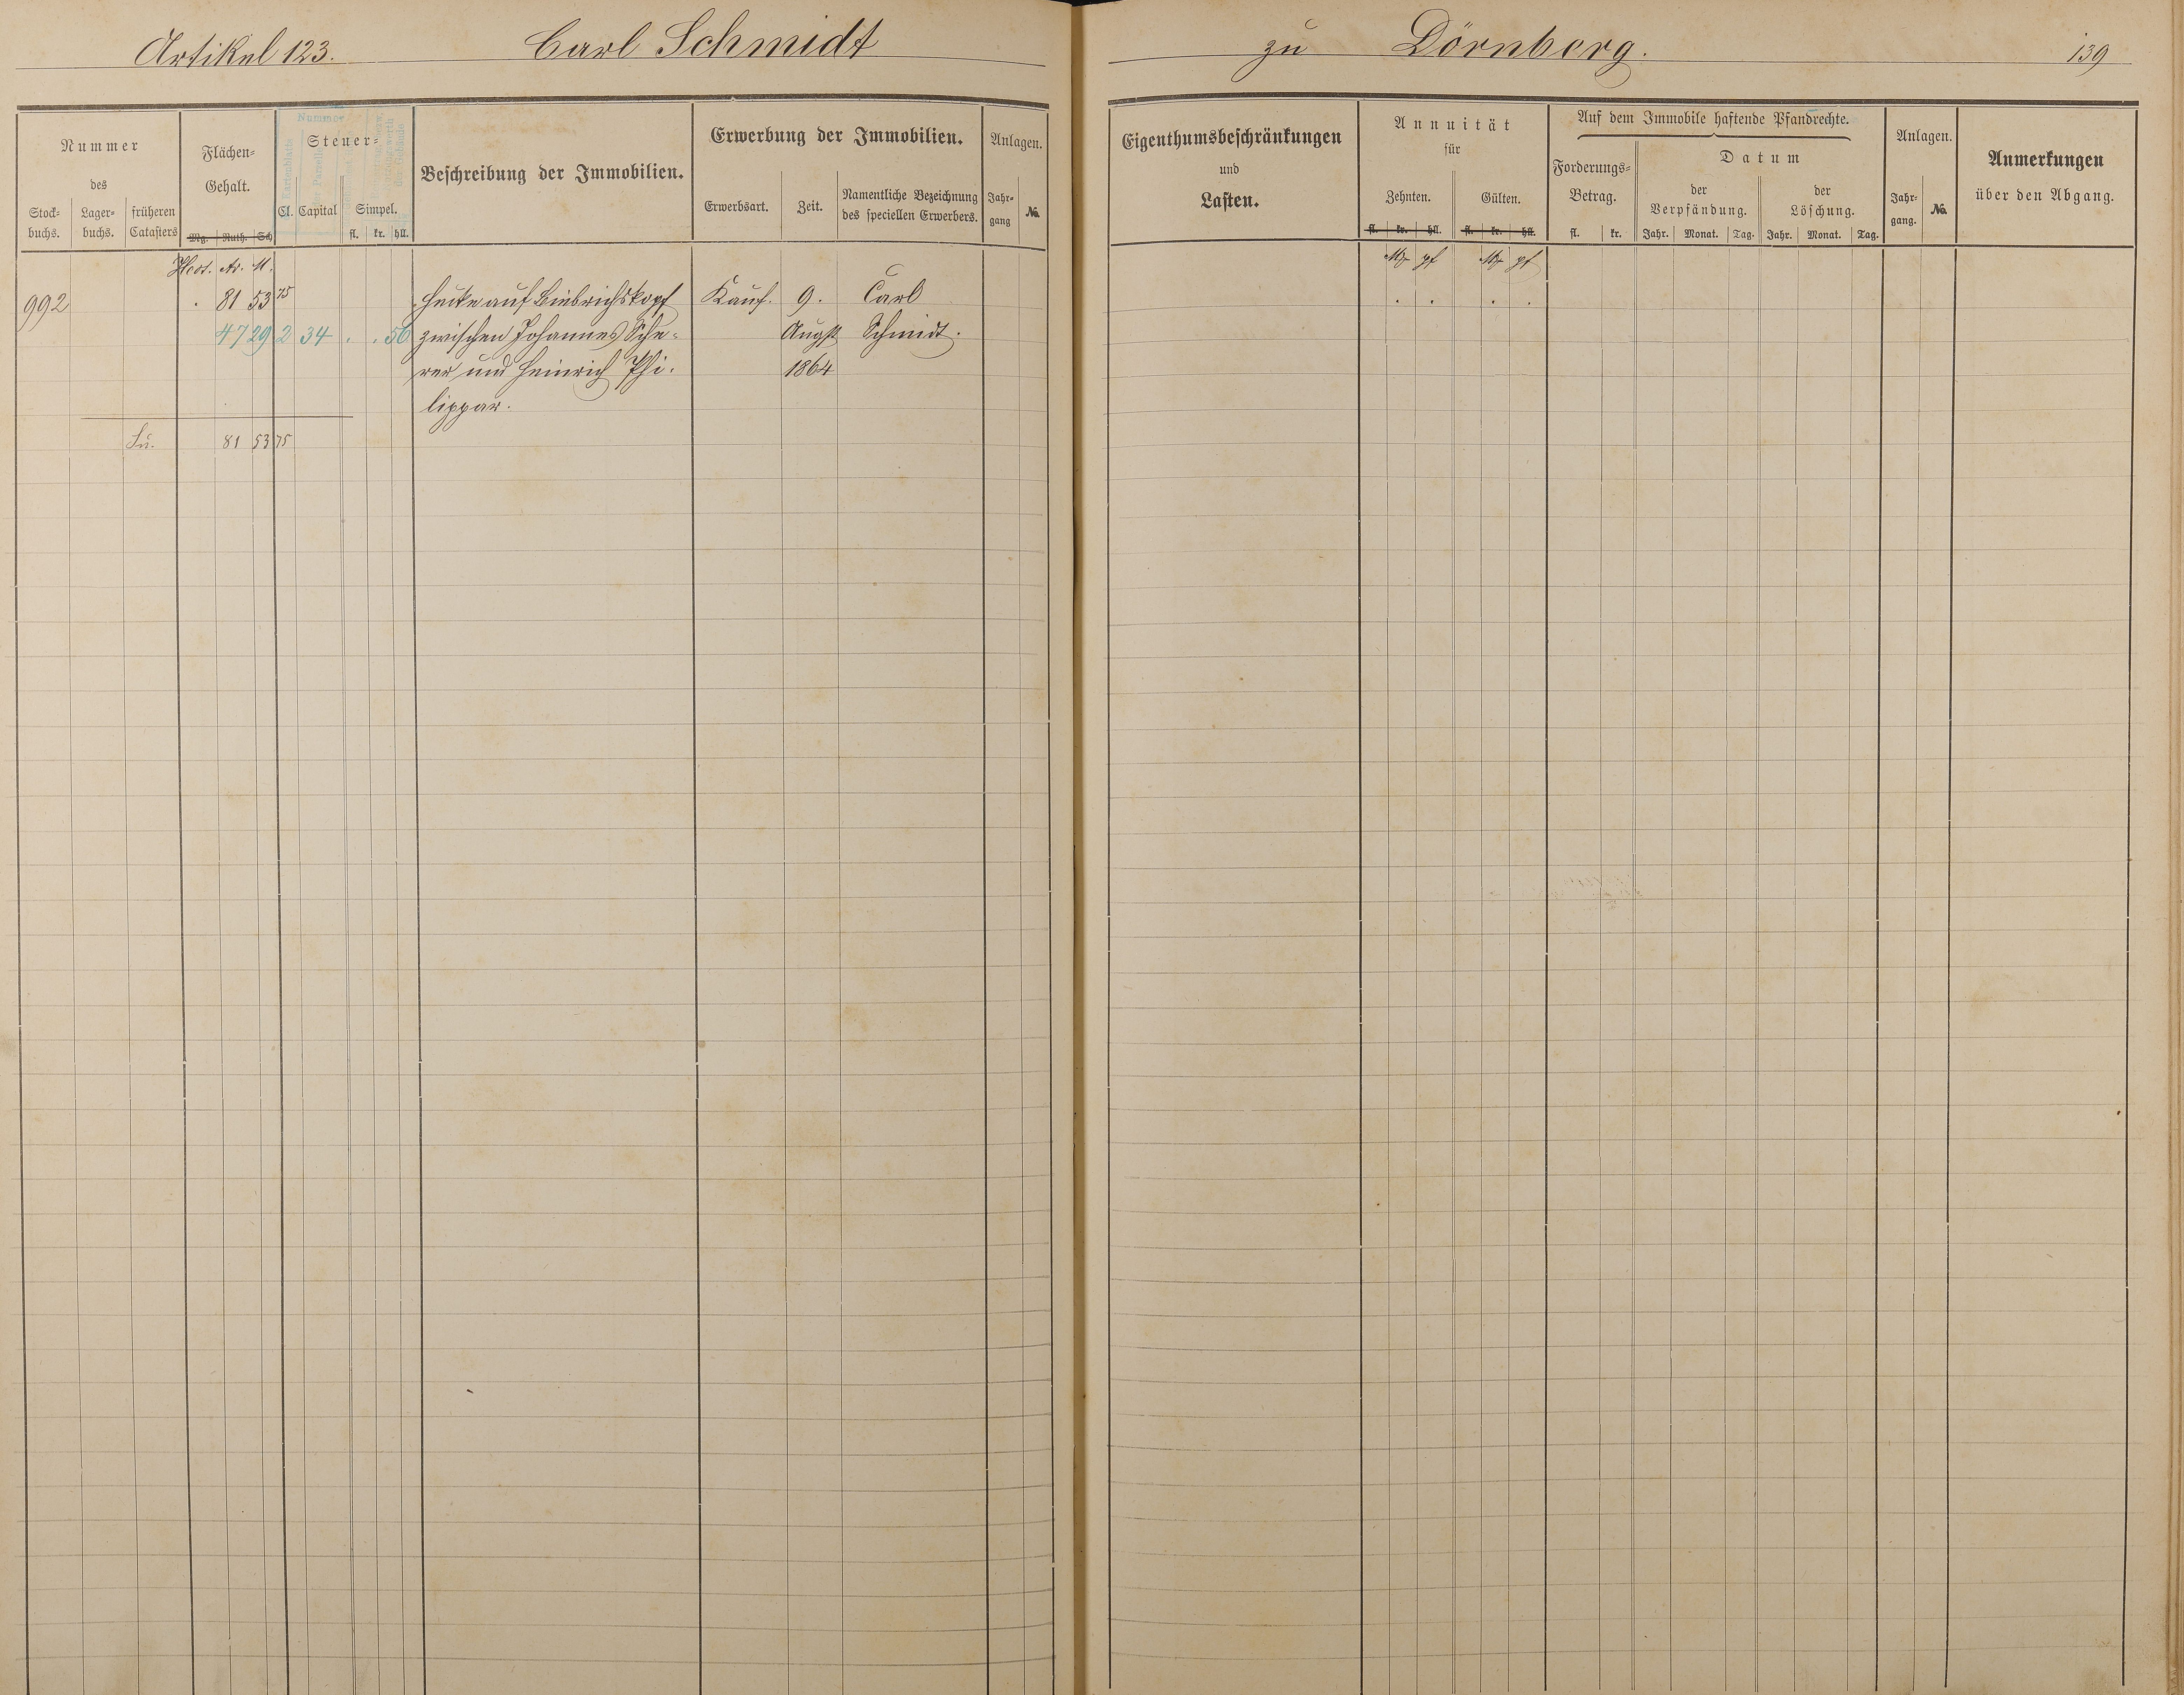 Artikel 123. Carl Schmidt zu Dörnberg. 139
Nummer
des
Stock-
buchs.
Lager-
buchs.
früheren
Catasters
Flächen-
Gehalt.
Mg. Ruth. Sch
Nummer
Steuer-
Cl. Capital Simpel.
fl. kr. hll.
Beschreibung der Immobilien.
Erwerbung der Immobilien.
Erwerbsart. Zeit.
Namentliche Bezeichnung
des speciellen Erwerbers.
Anlagen.
Jahr-
gang
No.
Eigenthumsbeschränkungen
und
Lasten.
Annuität
für
Zehnten. Gülten.
fl. kr. hll. fl. kr. hll.
Auf dem Immobile haftende Pfandrechte.
Forderungs-
Betrag.
fl. kr.
Datum
der
Verpfändung.
der
Löschung.
Jahr. Monat. Tag. Jahr. Monat. Tag.
Anlagen.
Jahr-
gang.
No.
Anmerkungen
über den Abgang.
Hect. Ar. M. Mk pf Mk pf
992 . 81 53 75 Hecke auf Biebrichskopf Kauf. 9. Carl . . . .
47 29 2 34 . . 56 zwischen Johannes Sche- Augst Schmidt.
rer und Heinrich Phi- 1864
lippar.
Su. 81 53 75